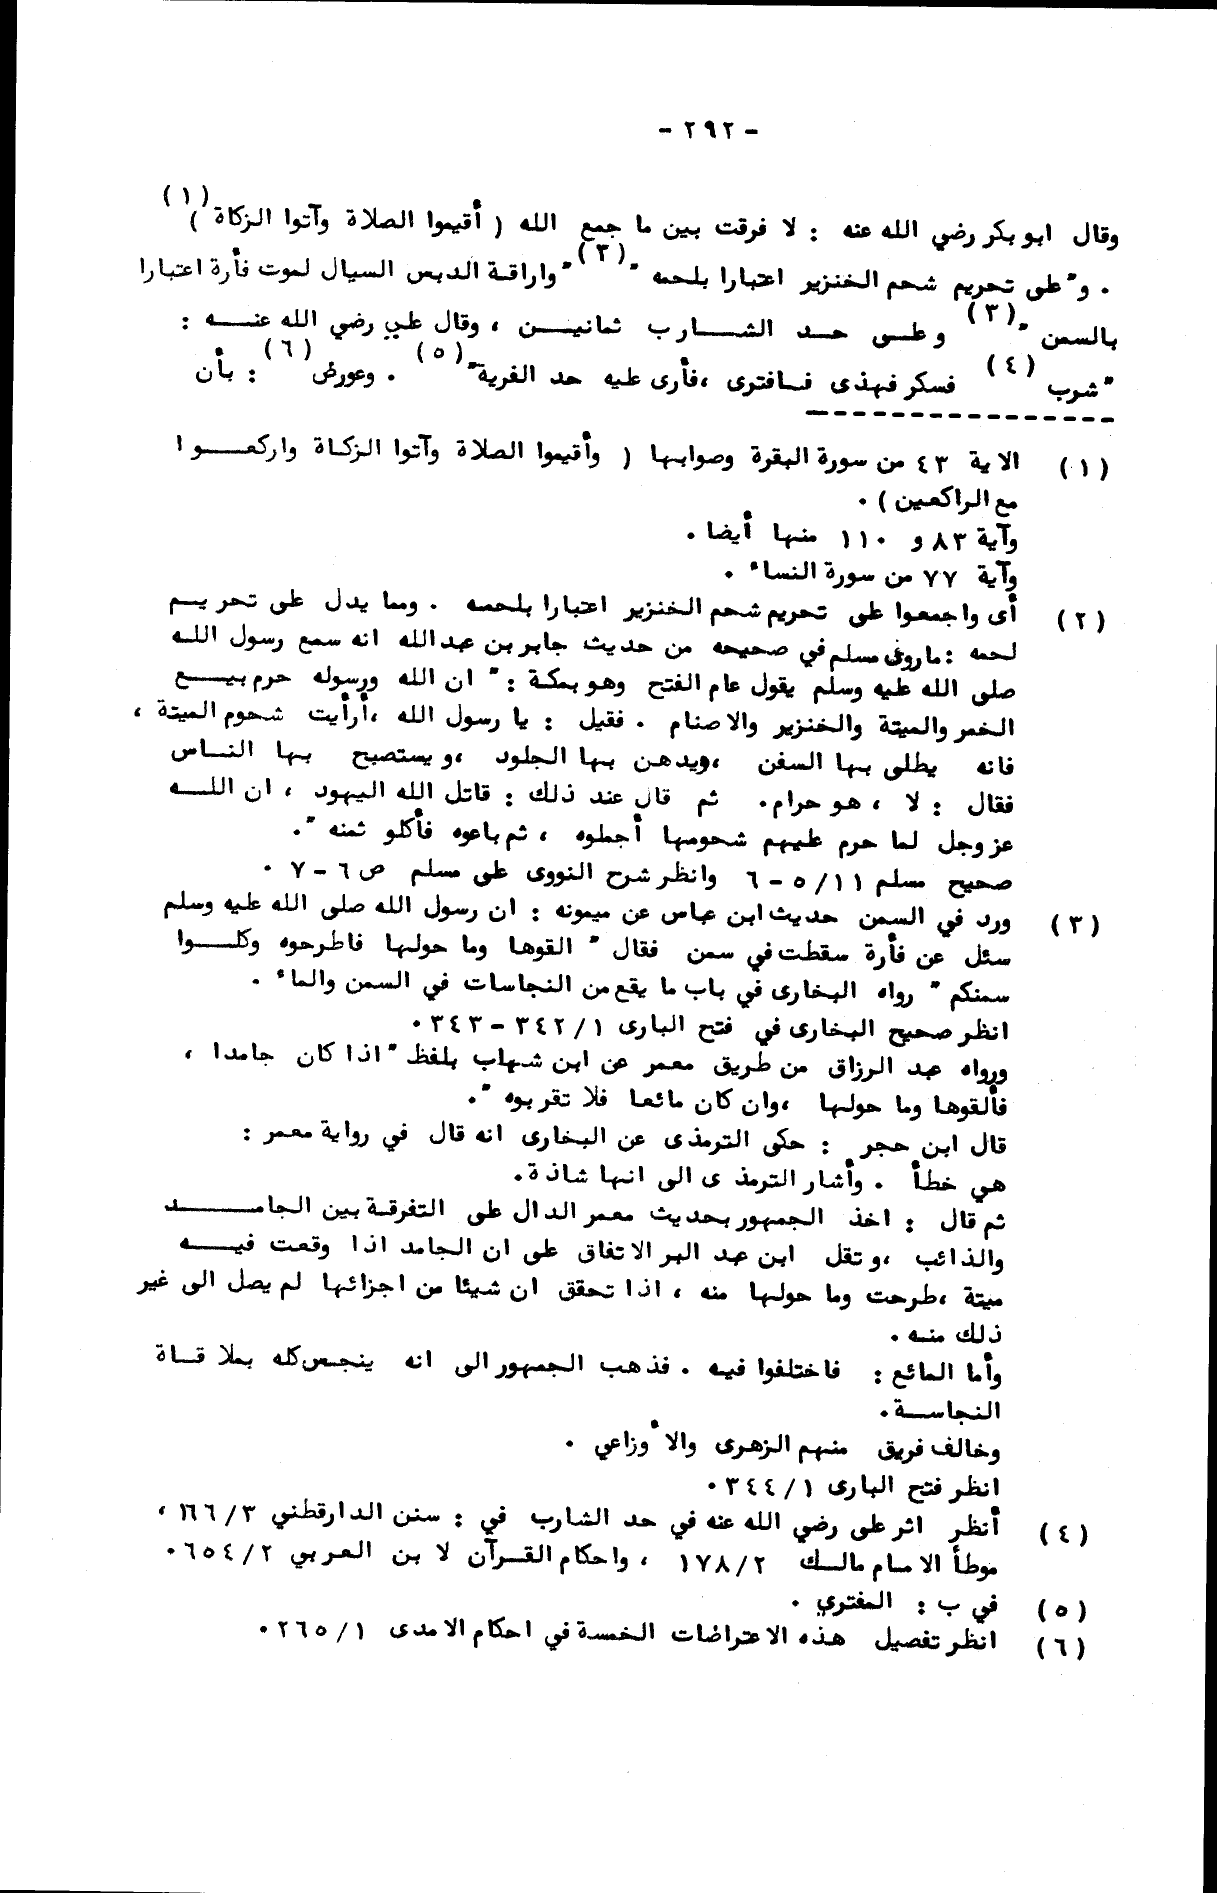 - ٢٩٢ -
وقال ابو بكر رضي الله عنه : لا فرقت بين ما جمع الله ( أقيموا الصلاة وآتوا الزكاة )(١)
. و"على تحريم شحم الخنزير اعتبارا بلحمه "(٢) "واراقة الدبس السيال لموت فأرة اعتبارا
بالسمن "(٣) وعلى حد الشارب ثمانين ، وقال علي رضي الله عنه :
"شرب (٤) فسكر فهذى فافترى ،فأرى عليه حد الفرية"(٥) . وعورض(٦) : بأن
(١) الاية ٤٣ من سورة البقرة وصوابها ( وأقيموا الصلاة وآتوا الزكاة واركعوا
مع الراكعين ) .
وآية ٨٣ و ١١٠ منها أيضا .
وآية ٧٧ من سورة النساء .
(٢) أى واجمعوا على تحريم شحم الخنزير اعتبارا بلحمه . ومما يدل على تحريم
لحمه : ماروى مسلم في صحيحه من حديث جابر بن عبدالله انه سمع رسول الله
صلى الله عليه وسلم يقول عام الفتح وهو بمكة : " ان الله ورسوله حرم بيع
الخمر والميتة والخنزير والاصنام . فقيل : يا رسول الله ،أرأيت شحوم الميتة ،
فانه يطلى بها السفن ،ويدهن بها الجلود ،ويستصبح بها الناس
فقال : لا ، هو حرام. ثم قال عند ذلك : قاتل الله اليهود ، ان الله
عز وجل لما حرم عليهم شحومها أجملوه ، ثم باعوه فأكلو ثمنه ".
صحيح مسلم ١١/ ٥ - ٦ وانظر شرح النووى على مسلم ص ٦ - ٧ .
(٣) ورد في السمن حديث ابن عباس عن ميمونه : ان رسول الله صلى الله عليه وسلم
سئل عن فأرة سقطت في سمن فقال " القوها وما حولها فاطرحوه وكلوا
سمنكم " رواه البخارى في باب ما يقع من النجاسات في السمن والماء .
انظر صحيح البخارى في فتح البارى ١/ ٣٤٢ - ٣٤٣ .
ورواه عبد الرزاق من طريق معمر عن ابن شهاب بلفظ "اذا كان جامدا ،
فألقوها وما حولها ،وان كان مائعا فلا تقربوه ".
قال ابن حجر : حكى الترمذى عن البخارى انه قال في رواية معمر :
هي خطأ . وأشار الترمذى الى انها شاذة.
ثم قال : اخذ الجمهور بحديث معمر الدال على التفرقة بين الجامد
والذائب ،ونقل ابن عبد البر الاتفاق على ان الجامد اذا وقعت فيه
ميتة ،طرحت وما حولها منه ، اذا تحقق ان شيئا من اجزائها لم يصل الى غير
ذلك منه .
وأما المائع : فاختلفوا فيه . فذهب الجمهور الى انه ينجس كله بملاقاة
النجاسة.
وخالف فريق منهم الزهرى والأوزاعي .
انظر فتح البارى ١/ ٣٤٤ .
(٤) أنظر اثر على رضي الله عنه في حد الشارب في : سنن الدارقطني ٣/ ١٦٦ ،
موطأ الامام مالك ٢/ ١٧٨ ، واحكام القرآن لابن العربي ٢/ ٦٥٤ .
(٥) في ب : المفتري .
(٦) انظر تفصيل هذه الاعتراضات الخمسة في احكام الامدى ١/ ٢٦٥ .